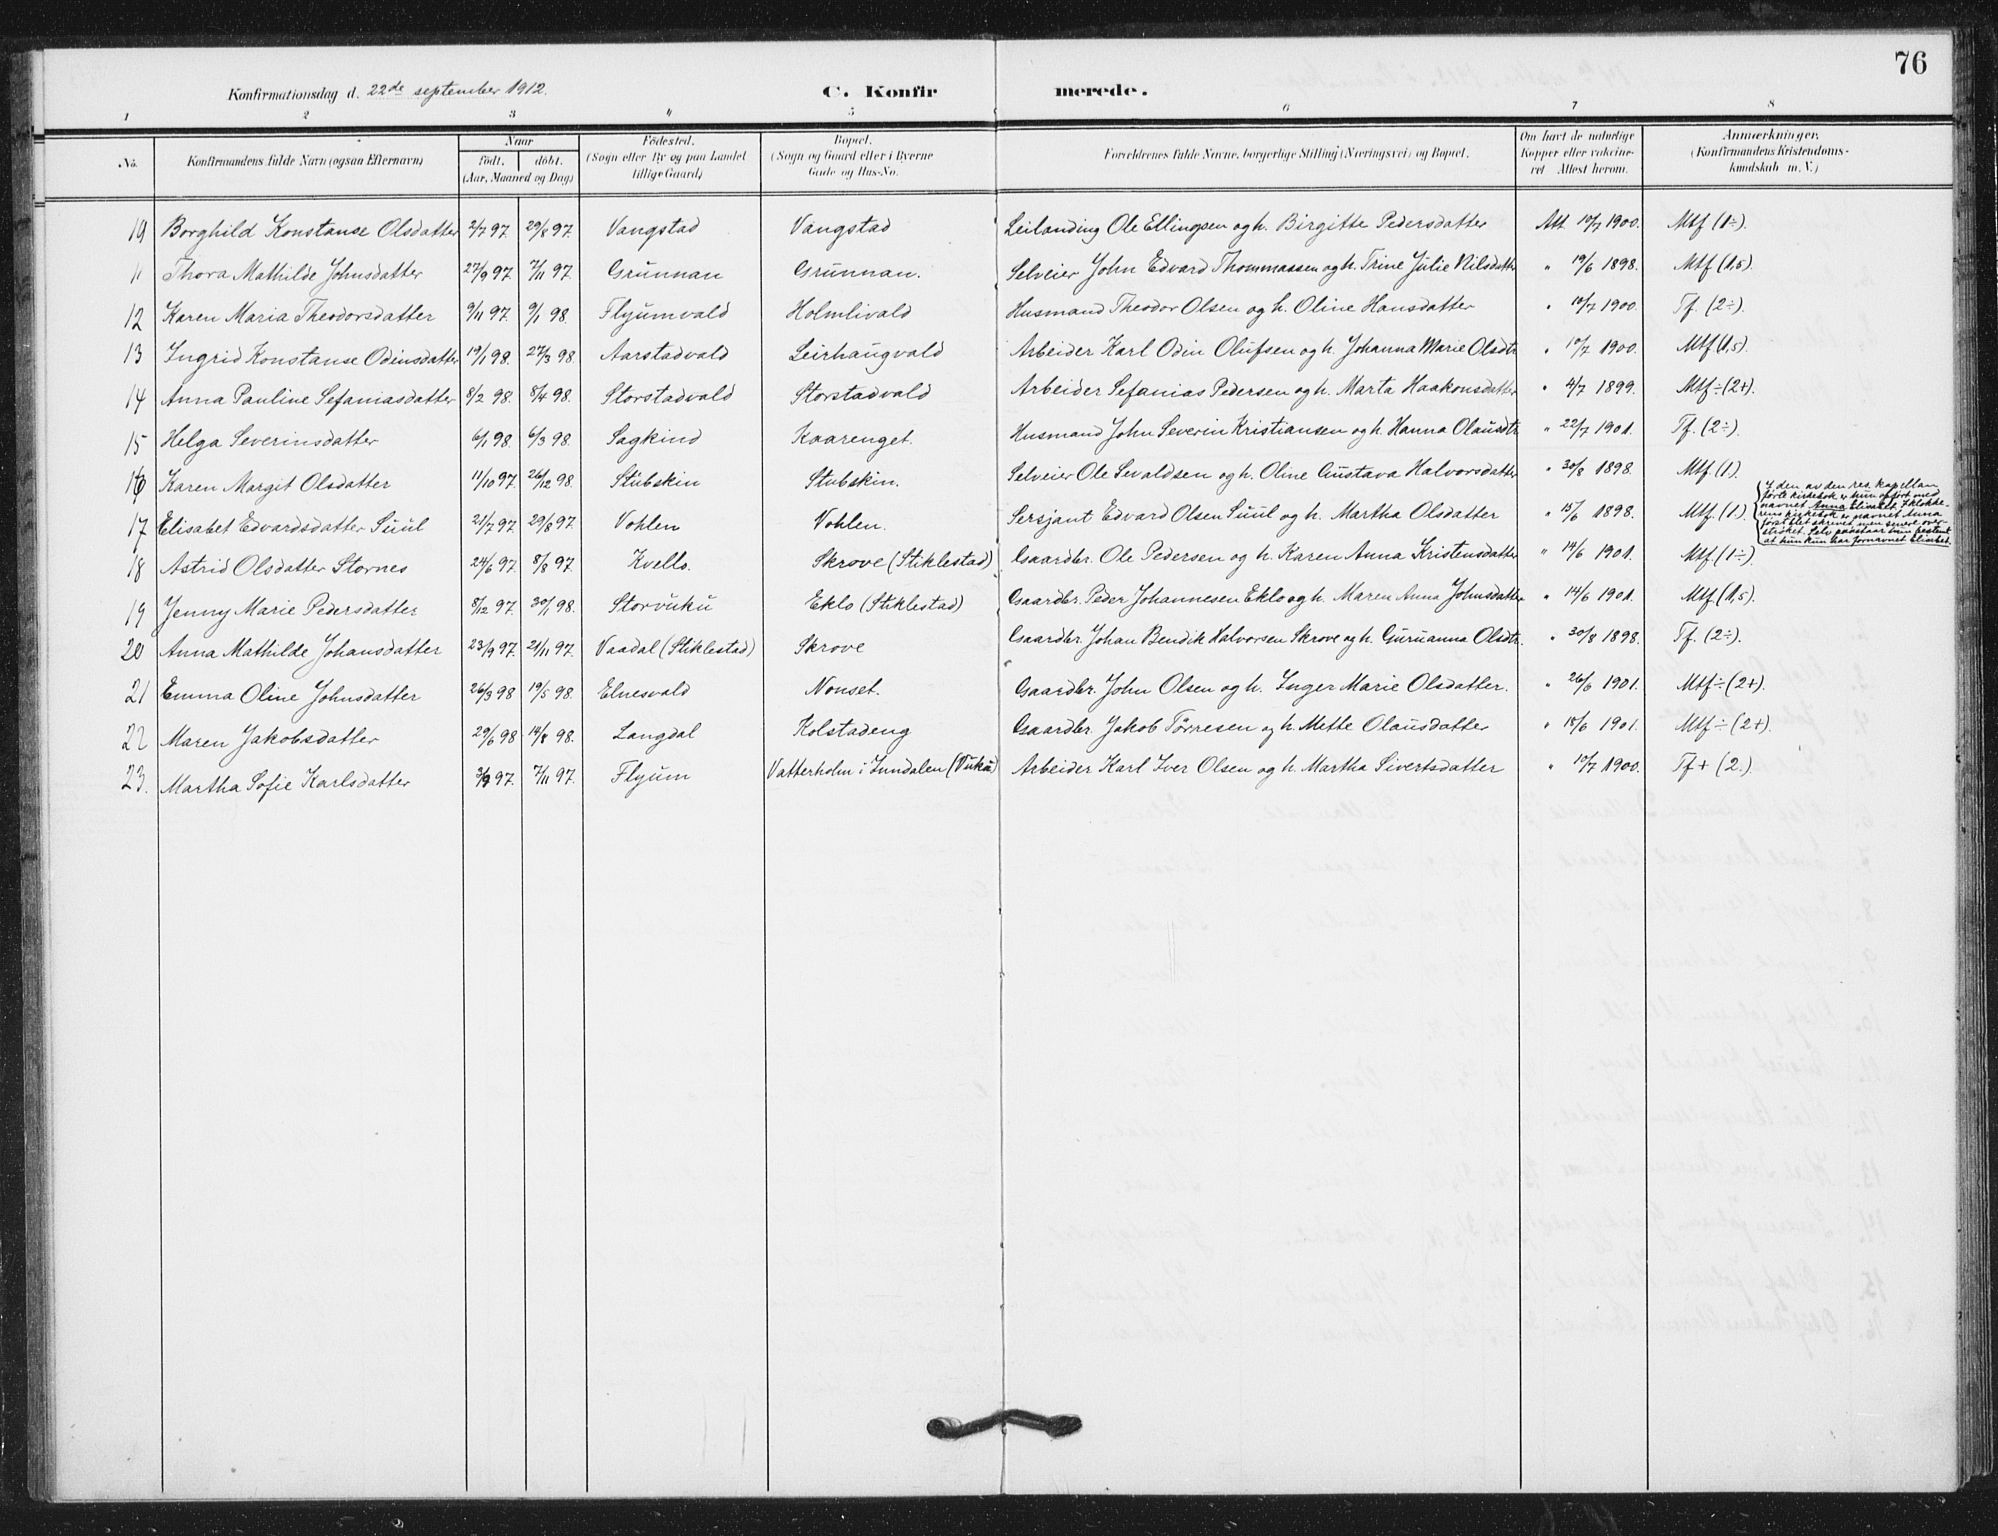 76
Konfirmationsdag d. 22de september 1912. C. Konfirmerede.
1 2 3 4 5 6 7 8
No. Konfirmandens fulde Navn (ogsaa Efternavn) Naar födt. döbt. (Aar, Maaned og Dag) Födested. (Sogn eller By og paa Landet tillige Gaard) Bopæl. (Sogn og Gaard eller i Byerne Gade og Hus-No. Forældrenes fulde Navne, borgerlige Stilling (Næringsvei) og Bopæl. Om havt de naturlige Kopper eller vakcineret Attest herom. Anmærkninger. (Konfirmandens Kristendomskundskab m. V.)
10 Borghild Konstanse Olsdatter 2/7 97. 29/8 97. Vangstad Vangstad Leilending Ole Ellingsen og h. Birgitte Pedersdatter Att. 10/7 1900. Mtf (1÷)
11 Thora Mathilde Johnsdatter 27/9 97. 7/11 97. Grunnan Grunnan. Selveier John Edvard Thommassen og h. Trine Julie Nilsdatter " 19/6 1898. Mtf (1,5)
12 Karen Maria Theodorsdatter 9/11 97. 9/1 98. Flyumvald Holmlivald Husmand Theodor Olsen og h. Oline Hansdatter " 10/7 1900. Tf. (2÷)
13 Ingrid Konstanse Odinsdatter 19/1 98. 27/3 98. Aarstadvald Leirhaugvald Arbeider Karl Odin Olufsen og h. Johanna Marie Olsdtr " 10/7 1900. Mtf (1,5)
14 Anna Pauline Sefaniasdatter 8/2 98. 8/4 98. Storstadvald Storstadvald Arbeider Sefanias Pedersen og h. Marta Haakonsdatter " 4/7 1899. Mtf÷(2+).
15 Helga Severinsdatter 6/1 98. 6/3 98. Sagkind Kaarenget. Husmand John Severin Kristiansen og h. Hanna Olausdtr " 22/7 1901. Tf. (2÷).
16 Karen Margit Olsdatter 11/10 97. 26/12 98. Stubskin Stubskin. Selveier Ole Sevaldsen og h. Oline Gustava Halvorsdatter " 30/8 1898. Mtf. (1).
17 Elisabet Edvardsdatter Suul 21/7 97. 29/8 97 Vohlen Vohlen. Sersjant Edvard Olsen Suul og h. Martha Olsdatter " 15/6 1898. Mtf. (1).
I den av den res. kapellan
førte kirkebok er hun opført med
navnet Anna Elisabet. I klokke-
rens kirkebok er navnet Anna
først blet skrevet men senere over-
strøket. Selv paastaar hun bestemt
at hun kun har fornavnet Elisabet.
18 Astrid Olsdatter Stornes 24/6 97. 8/8 97. Kvello. Skrove (Stiklestad) Gaardbr. Ole Pedersen og h. Karen Anna Kristensdatter " 14/6 1901. Mtf (1÷)
19 Jenny Marie Pedersdatter 8/12 97. 30/1 98. Storvuku Eklo (Stiklestad) Gaardbr. Peder Johannesen Eklo og h. Maren Anna Johnsdatter " 14/6 1901. Mtf (1,5)
20 Anna Mathilde Johansdatter 23/9 97. 21/11 97. Vaadal (Stiklestad) Skrove Gaardbr. Johan Bendik Halvorsen Skrove og h. Guruanna Olsdtr. " 30/8 1898. Tf. (2÷).
21 Emma Oline Johnsdatter 26/3 98 19/5 98. Elnesvald Nonset. Gaardbr. John Olsen og h. Inger Marie Olsdatter. " 26/6 1901. Mtf÷(2+).
22 Maren Jakobsdatter 29/6 98 14/8 98. Langdal Kolstadeng Gaardbr. Jakob Tørresen og h. Mette Olausdatter " 15/6 1901. Mtf÷(2+).
23. Martha Sofie Karlsdatter 3/9 97. 7/11 97. Flyum Vatterholm i Inndalen (Vuku) Arbeider Karl Iver Olsen og h. Martha Sivertsdatter " 10/7 1900. Tf+ (2.)